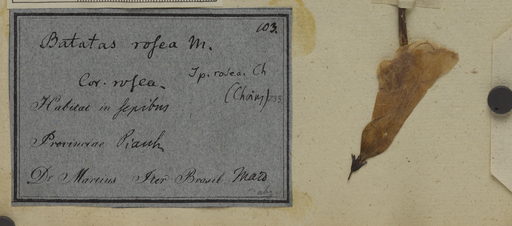 103.
Batatas rosea M.
Cor. rosea. Ip. rosea. Ch
(Choisy)
Habitat in sepibus
Provinciae Piauh
Dr Martius Iter Brasil